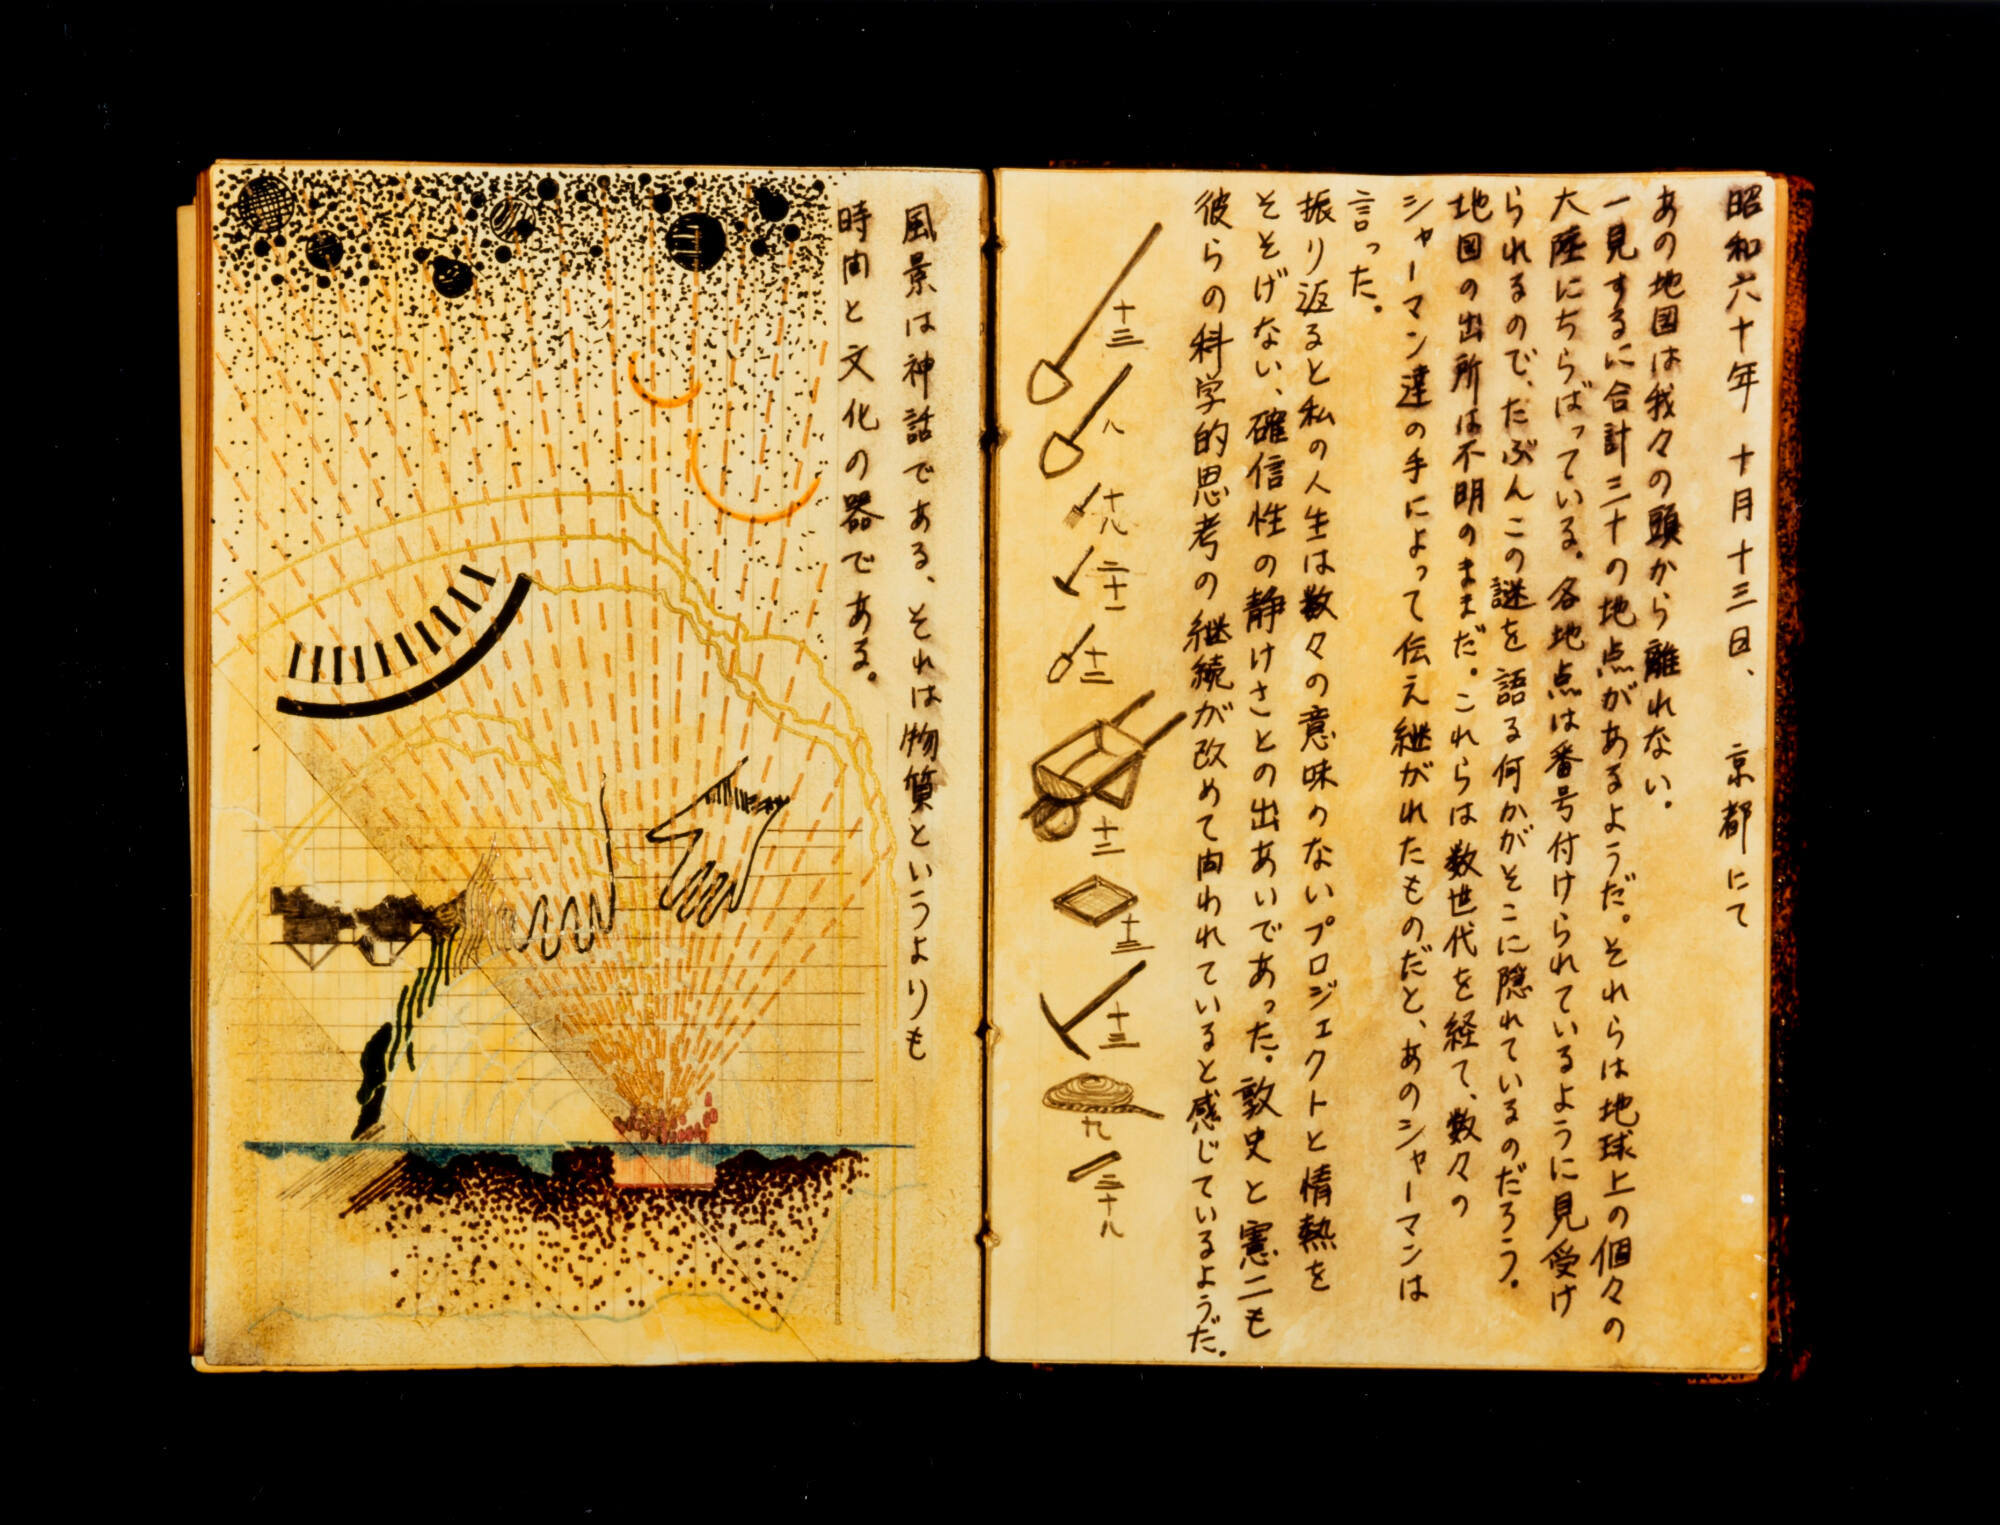 昭和六十年 十月十三日、 京都にて
あの地図は我々の頭から離れない。
一見するに合計三十の地点があるようだ。それらは地球上の個々の
大陸にちらばっている。各地点は番号付けられているように見受け
られるので、たぶんこの謎を語る何かがそこに隠れているのだろう。
地図の出所は不明のままだ。これらは数世代を経て、数々の
シャーマン達の手によって伝え継がれたものだと、あのシャーマンは
言った。
振り返ると私の人生は数々の意味のないプロジェクトと情熱を
そそげない、確信性の静けさとの出あいであった。敦史と憲二も
彼らの科学的思考の継続が改めて問われていると感じているようだ。
十三
八
十八
二十一
十二
十二
十三
十三
九
三十八
風景は神話である、それは物質というよりも
時間と文化の器である。